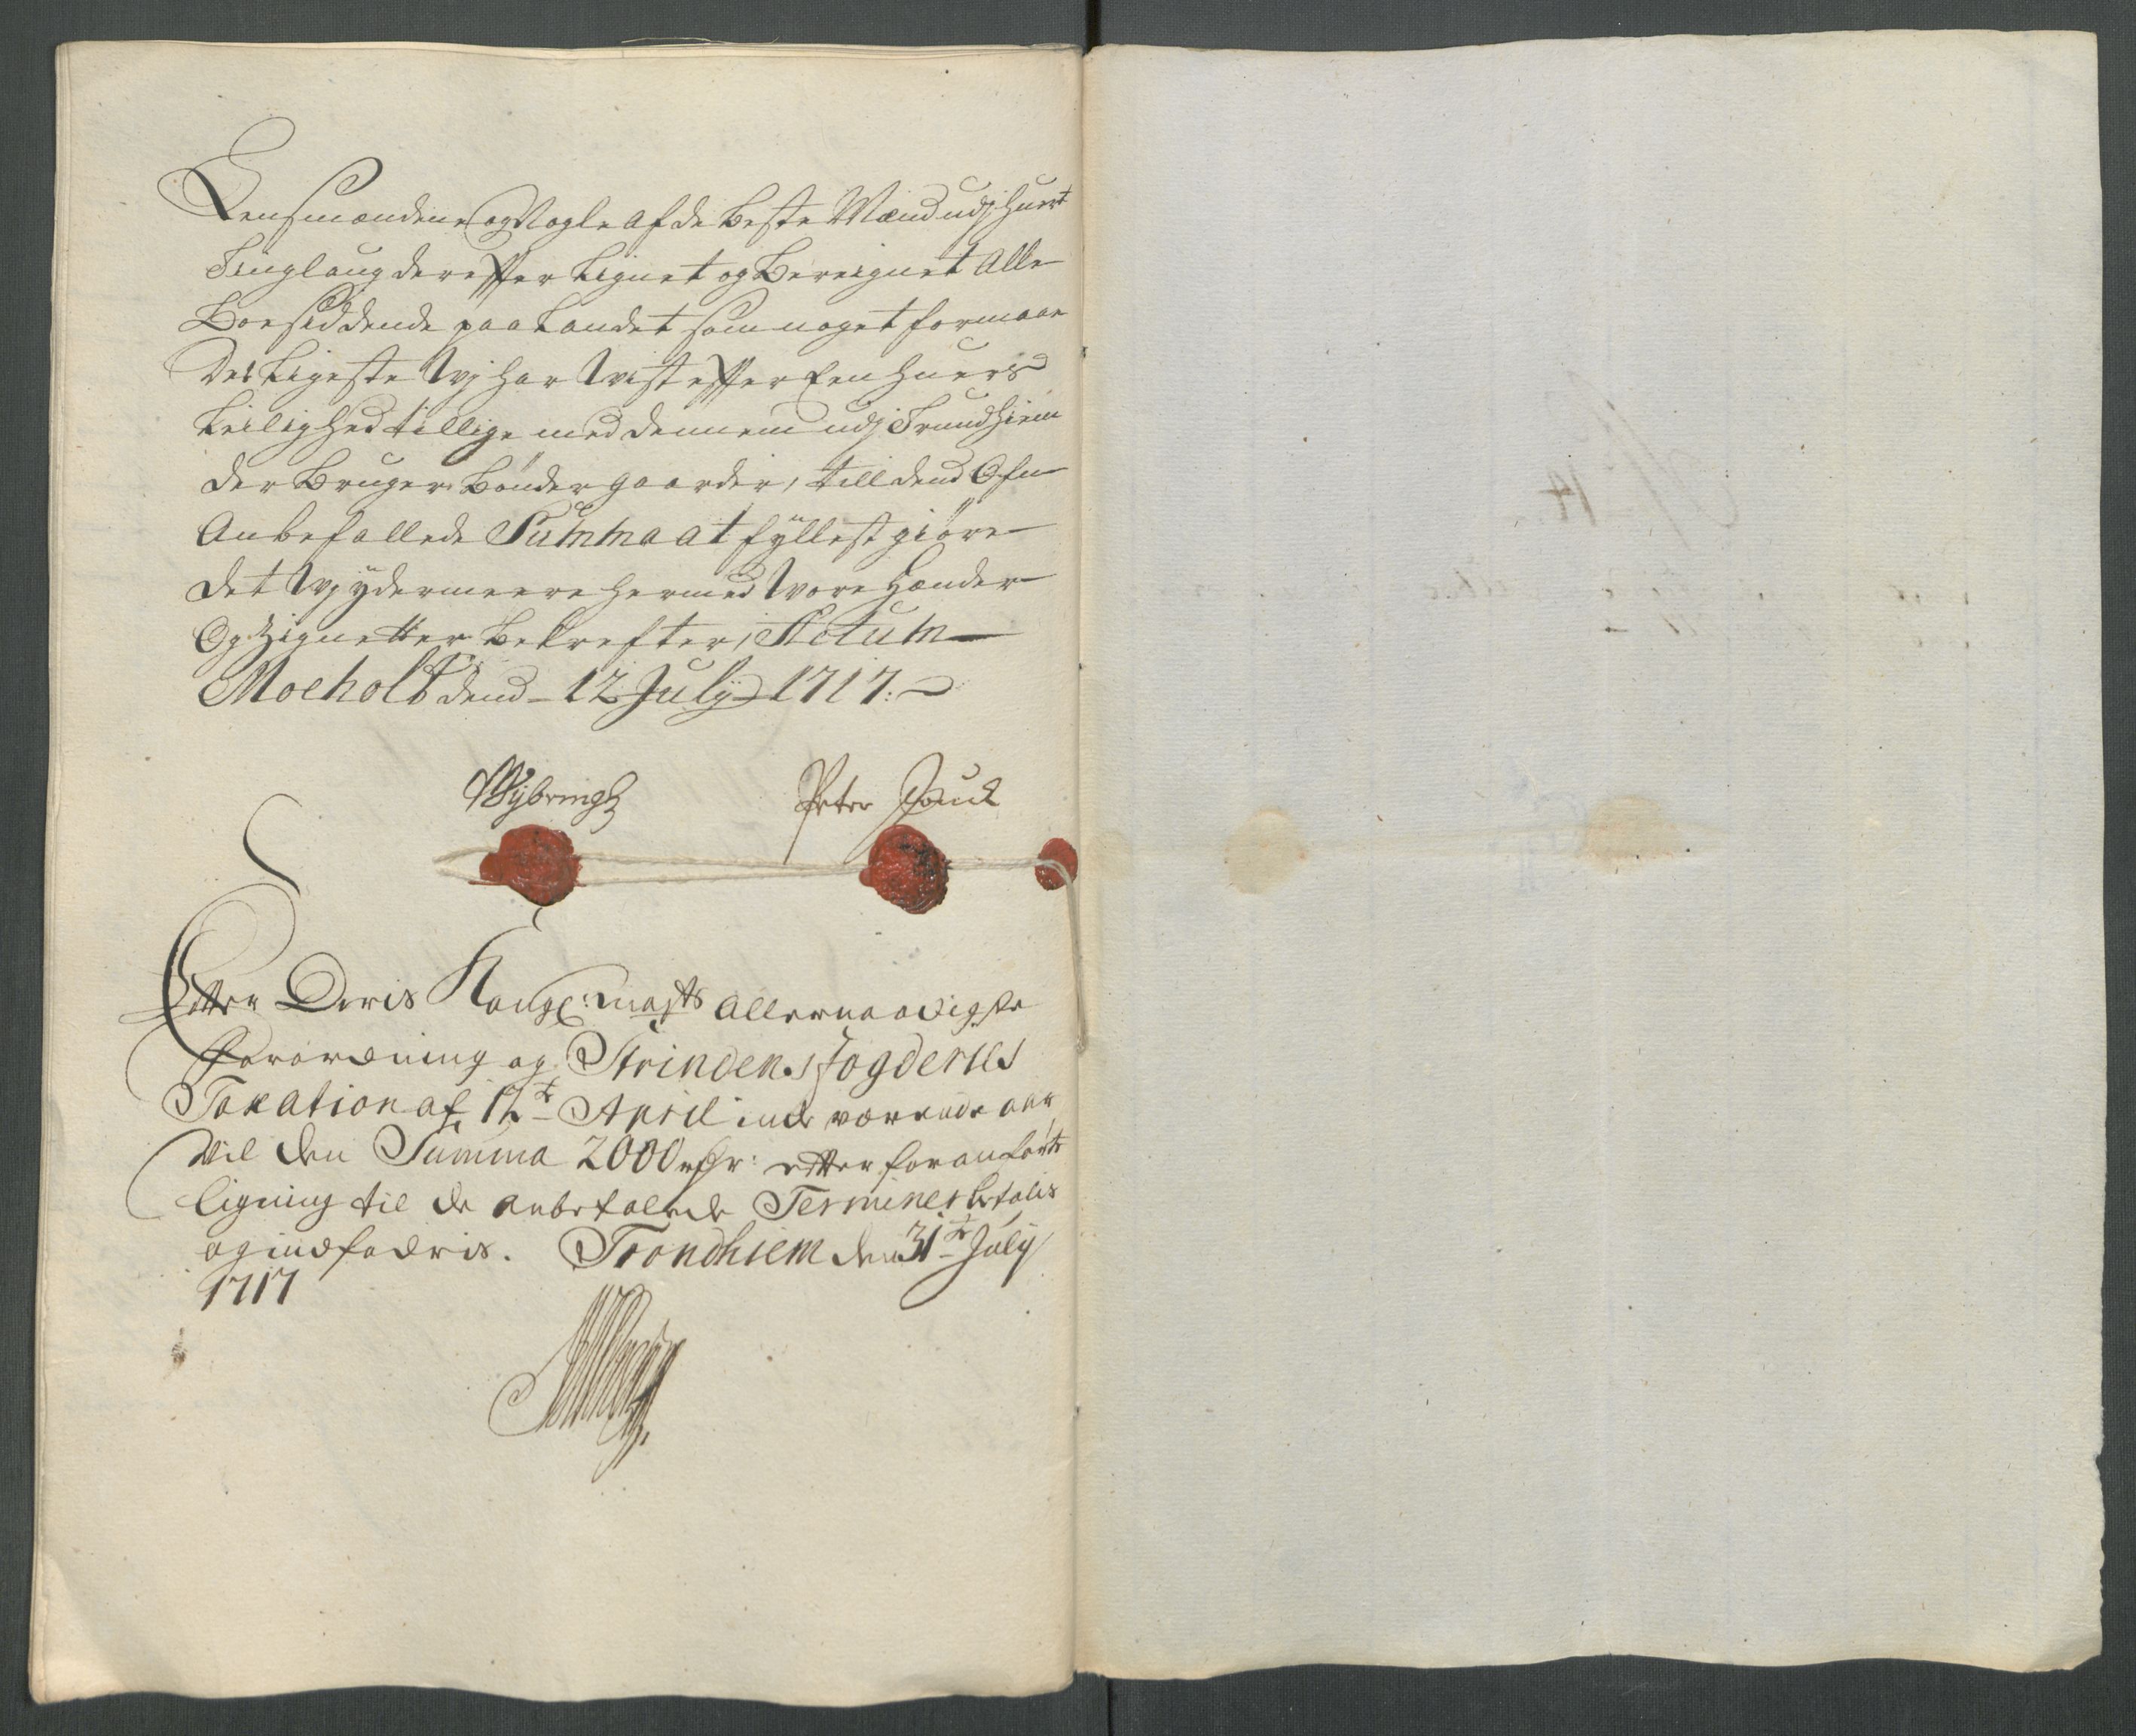 Lensmændene og Nogle af de beste Mænd udj huert
Tinglaug derefter Lignet og Bereignet Alle
Boesiddende paa Landet som noget formaar
Det Ligeste Wj har Wist efter Een huers
Leilighed tillige med dennem udj Trundhiem
der Bruger Bønder gaarder, till dend Ofn
Anbefallede Summa at fyllest giøre
det Wj ydermeere hermed Wore Hænder
Og Zignetter Bekrefter, Actum
Moeholt dend 12 July 1717.
Peter
Efter Deris Kongl: Majts allernaadigste
Forordning og Strindens fogderies
Taxation af 12t April inde værende aar
vil den Summa 2000 rdr: efter foranførte
ligning til de anbefalede Termines betalis
og indfodris. Trondhiem den 31t July
1717